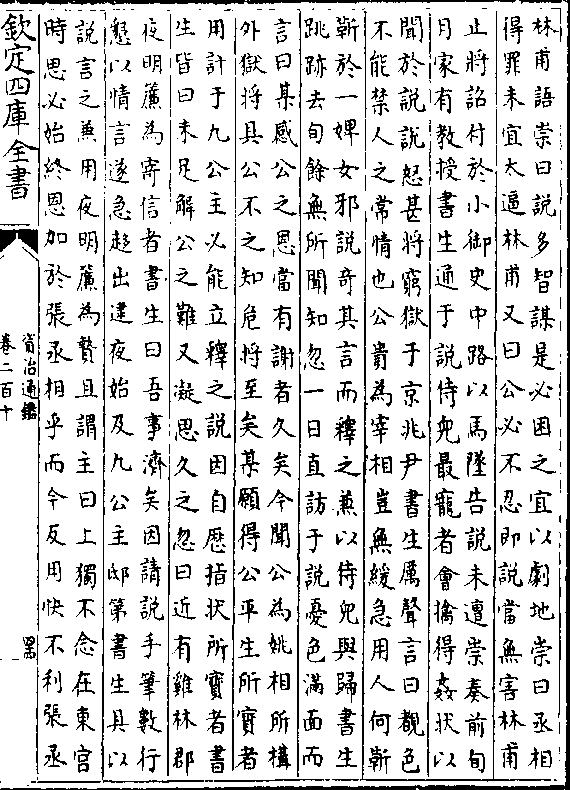 林甫語崇曰說多智謀是必困之宜以劇地崇曰丞相
得罪未宜太逼林甫又曰公必不忍即說當無害林甫
止將詔付於小御史中路以馬墜告說未遭崇奏前旬
月家有教授書生通于說侍兒最寵者會擒得姦狀以
聞於說說怒甚將窮獄于京兆尹書生厲聲言曰覩色
不能禁人之常情也公貴為宰相豈無緩急用人何靳
靳於一婢女邪說奇其言而釋之兼以侍兒與歸書生
跳跡去旬餘無所聞知忽一日直訪于說憂色滿面而
言曰某感公之恩當有謝者久矣今聞公為姚相所構
外獄將具公不之知危將至矣某願得公平生所寶者
用計于九公主必能立釋之說因自歷指狀所寶者書
生皆曰未足解公之難又凝思久之忽曰近有雞林郡
夜明簾為寄信者書生曰吾事濟矣因請說手筆數行
懇以情言遂急趍出逮夜始及九公主邸第書生具以
說言之兼用夜明簾為贄且謂主曰上獨不念在東宮
時思必始終恩加於張丞相乎而今反用快不利張丞
欽定四庫全書
資治通鑑
卷二百十